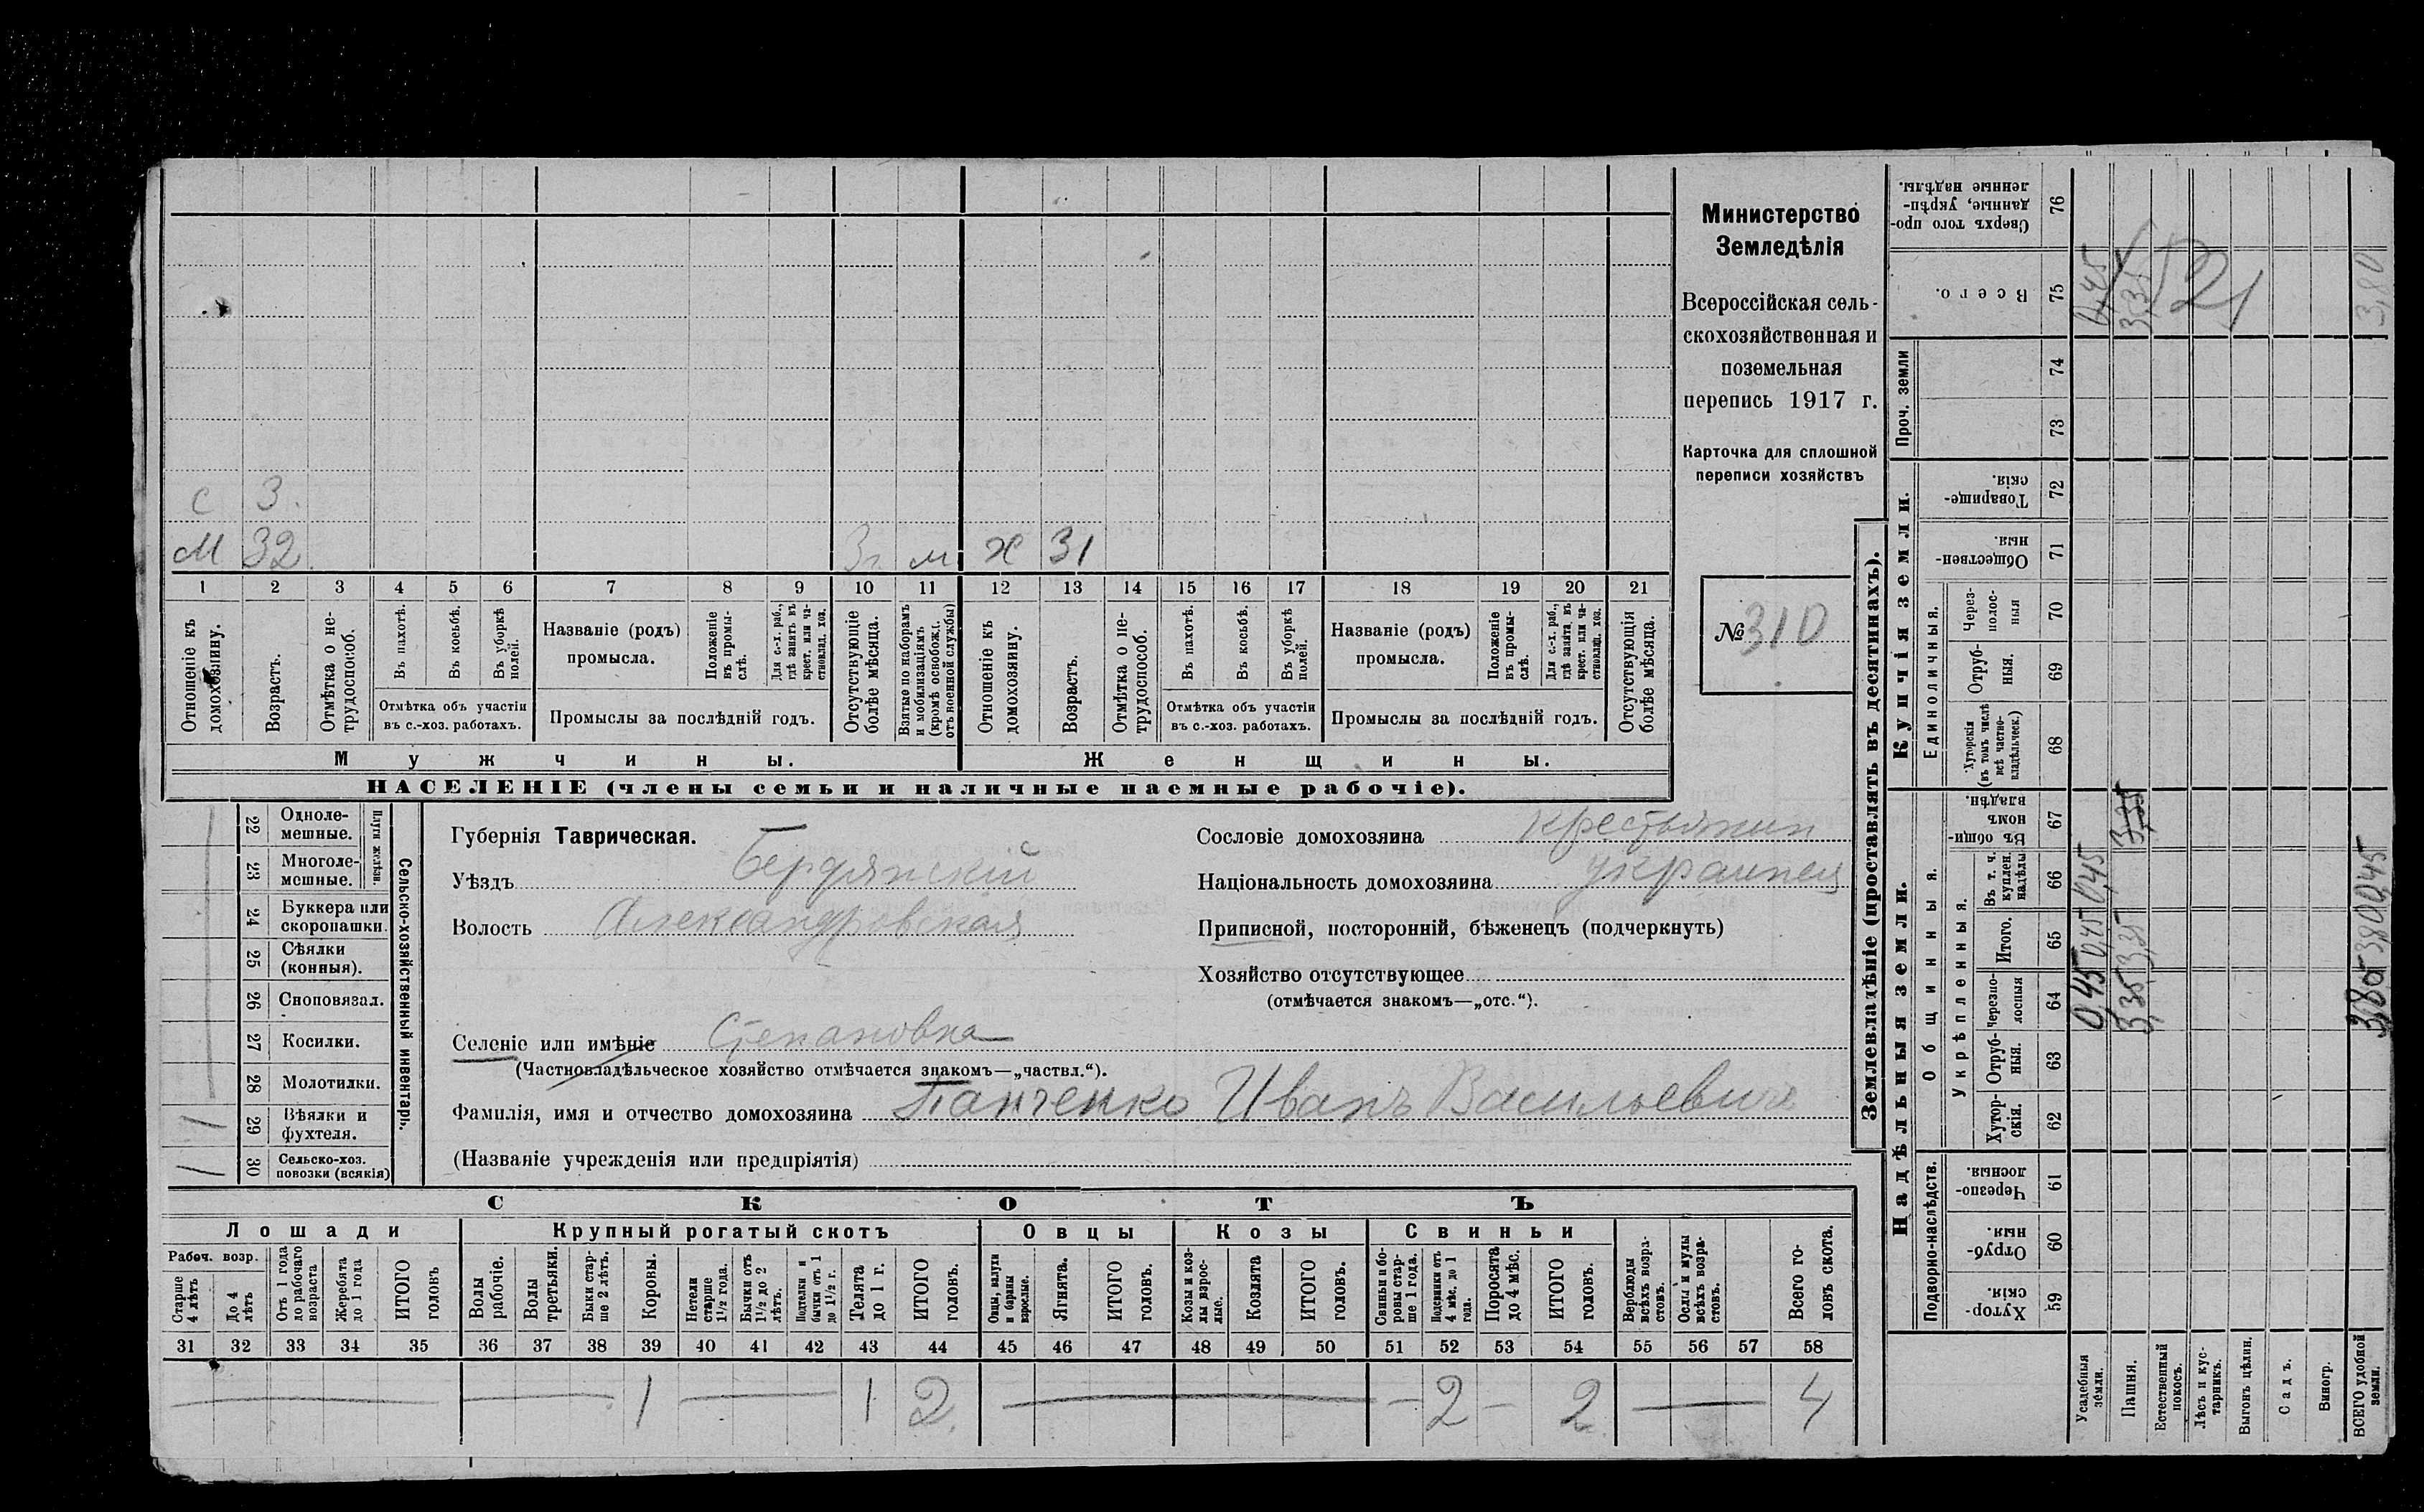 Министерство
Земледѣлія
Всероссійская сель-
скохозяйственная и
поземельная
перепись 1917 г.
Карточка для сплошной
переписи хозяйствъ
№ 310
с 3.
м 32. 3 г. м ж 31
1 2 3 4 5 6 7 8 9 10 11 12 13 14 15 16 17 18 19 20 21
Отношеніе къ домохозяину.
Возрастъ.
Отмѣтка о не-трудоспособ.
Въ пахотѣ.
Въ косьбѣ.
Въ уборкѣ полей.
Отмѣтка объ участіи
въ с.-хоз. работахъ.
Названіе (родъ)
промысла.
Положеніе въ промы-слѣ.
Для с.-х. раб., гдѣ занятъ въ крест. или ча-стновлад. хоз.
Промыслы за послѣдній годъ.
Отсутствующіе болѣе мѣсяца.
Взятые по наборамъ и мобилизаціямъ (кромѣ освобожд. отъ военной службы)
Отношеніе къ домохозяину.
Возрастъ.
Отмѣтка о не-трудоспособ.
Въ пахотѣ.
Въ косьбѣ.
Въ уборкѣ полей.
Отмѣтка объ участіи
въ с.-хоз. работахъ.
Названіе (родъ)
промысла.
Положеніе въ промы-слѣ.
Для с.-х. раб., гдѣ занята въ крест. или ча-стновлад. хоз.
Промыслы за послѣдній годъ.
Отсутствующія болѣе мѣсяца.
Мужчины. Женщины.
НАСЕЛЕНІЕ (члены семьи и наличные наемные рабочіе).
Сельско-хозяйственный инвентарь.
Плуги желѣзн.
22 Одноле-мешные.
23 Многоле-мешные.
24 Буккера или скоропашки.
25 Сѣялки (конныя).
26 Сноповязал.
27 Косилки.
28 Молотилки.
29 Вѣялки и фухтеля. 1
30 Сельско-хоз. повозки (всякія) 1
Губернія Таврическая.
Уѣздъ Бердянскій
Волость Александровская
Селеніе или имѣніе Степановка
(Частновладѣльческое хозяйство отмѣчается знакомъ—„частвл.“).
Фамилія, имя и отчество домохозяина Панченко Иванъ Васильевич
(Названіе учрежденія или предпріятія)
Сословіе домохозяина крестьянин
Національность домохозяина украинец
Приписной, посторонній, бѣженецъ (подчеркнуть)
Хозяйство отсутствующее
(отмѣчается знакомъ—„отс.“).
СКОТЪ
Лошади Крупный рогатый скотъ Овцы Козы Свиньи
Рабоч. возр.
Старше 4 лѣтъ
До 4 лѣтъ
Отъ 1 года до рабочаго возраста
Жеребята до 1 года
ИТОГО головъ
Волы рабочіе.
Волы третьяки.
Быки стар-ше 2 лѣтъ.
Коровы.
Нетели старше 1½ года.
Бычки отъ 1½ до 2 лѣтъ.
Подтелки и бычки отъ 1 до 1½ г.
Телята до 1 г.
ИТОГО головъ.
Овцы, валухи и бараны взрослые.
Ягнята.
ИТОГО головъ.
Козы и коз-лы взрос-лые.
Козлята
ИТОГО головъ.
Свиньи и бо-ровы стар-ше 1 года.
Подсвинки отъ 4 мѣс. до 1 года.
Поросята до 4 мѣс.
ИТОГО головъ.
Верблюды всѣхъ возра-стовъ.
Ослы и мулы всѣхъ возра-стовъ.
Всего го-ловъ скота.
31 32 33 34 35 36 37 38 39 40 41 42 43 44 45 46 47 48 49 50 51 52 53 54 55 56 57 58
1 1 2 2 2 4
Землевладѣніе (проставлять въ десятинахъ).
Надѣльныя земли. Купчія земли. Проч. земли
Подворно-наслѣдств. Общинныя. Единоличныя.
Укрѣпленныя.
59 Хутор-скія.
60 Отруб-ныя.
61 Черезпо-лосныя.
62 Хутор-скія.
63 Отруб-ныя.
64 Черезпо-лосныя
65 Итого.
66 Въ т. ч. куплен. надѣлы
67 Въ общи-номъ владѣн.
68 Хуторскія (въ томъ числѣ всѣ частно-владѣльческ.)
69 Отруб-ныя.
70 Через-полос-ныя
71 Обществен-ныя.
72 Товарище-скія.
73
74
75 Всего.
76 Сверхъ того про-данные, укрѣп-ленные надѣлы.
Усадебная земля. 0,45 0,45 0,45 0,45
Пашня. 3,35 3,35 3,35 3,35
Естественный покосъ.
Лѣсъ и кус-тарникъ.
Выгонъ цѣлин.
Садъ.
Виногр.
ВСЕГО удобной земли. 3,80 3,80 0,45 3,80
521